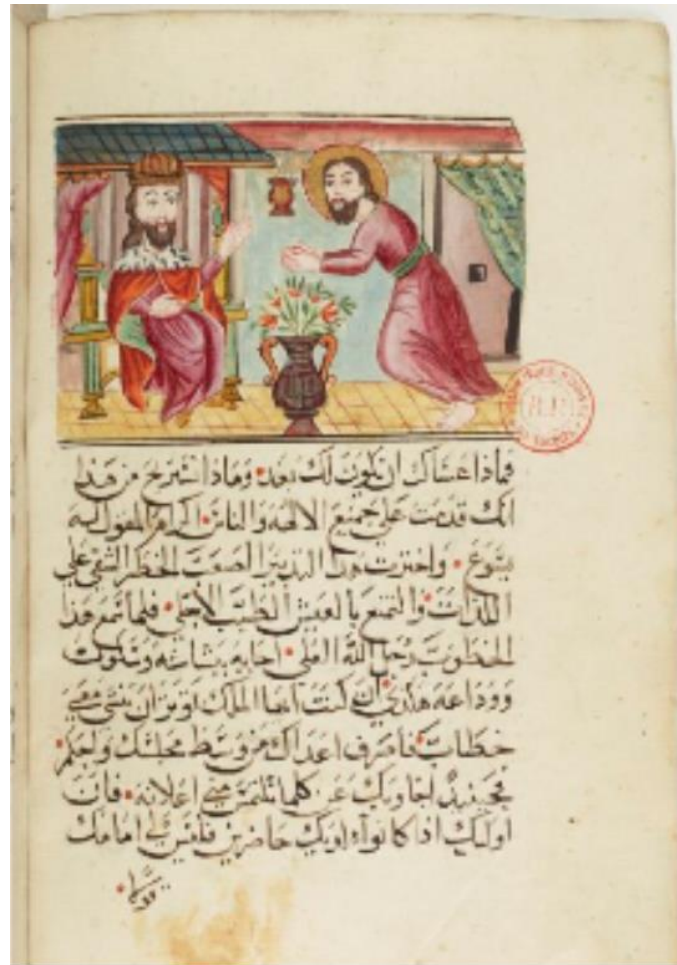 فماذا عساك ان تكون لك بعد وماذا نشرح من هذا
انك قدمت على جميع الالهه والناس الكرام المقول له
يشوع واخترت هذا التدبير الصعب الخطر الشقي علي
اللذات والتمتع بالعيش الطيب الأجلي فلما سمع هذا
الخطوب رجل الله العلي اجابه ببشاشه وسكوت
ووداعه هادي ان كنت ايها الملك توثر ان ينشي معي
خطاب فاصرف اعداك من وسط مجلسك
فحينيذ اجاوبك عن كلما تلتمس مني اعلانه فان
اوليك اذا كانوا حاضرين فليس لي امامك